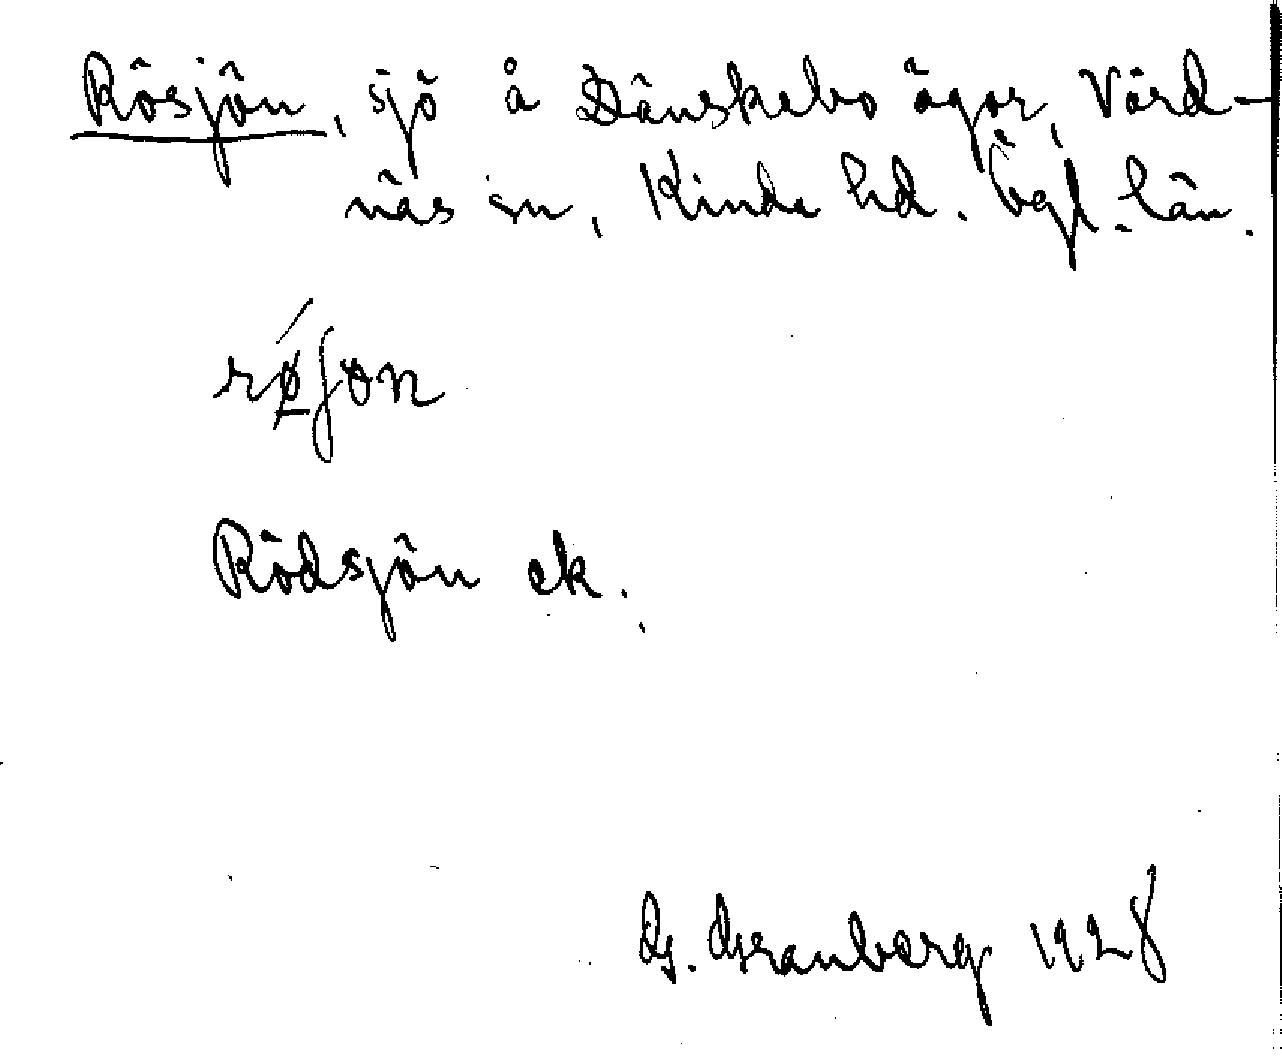 Rösjön, sjö å Dänskebo ägor, Värd-
näs sn, Kinda hd. Ögl. län.
rǿ̱ʃon
Rödsjön ek.
G. Granberg 1928